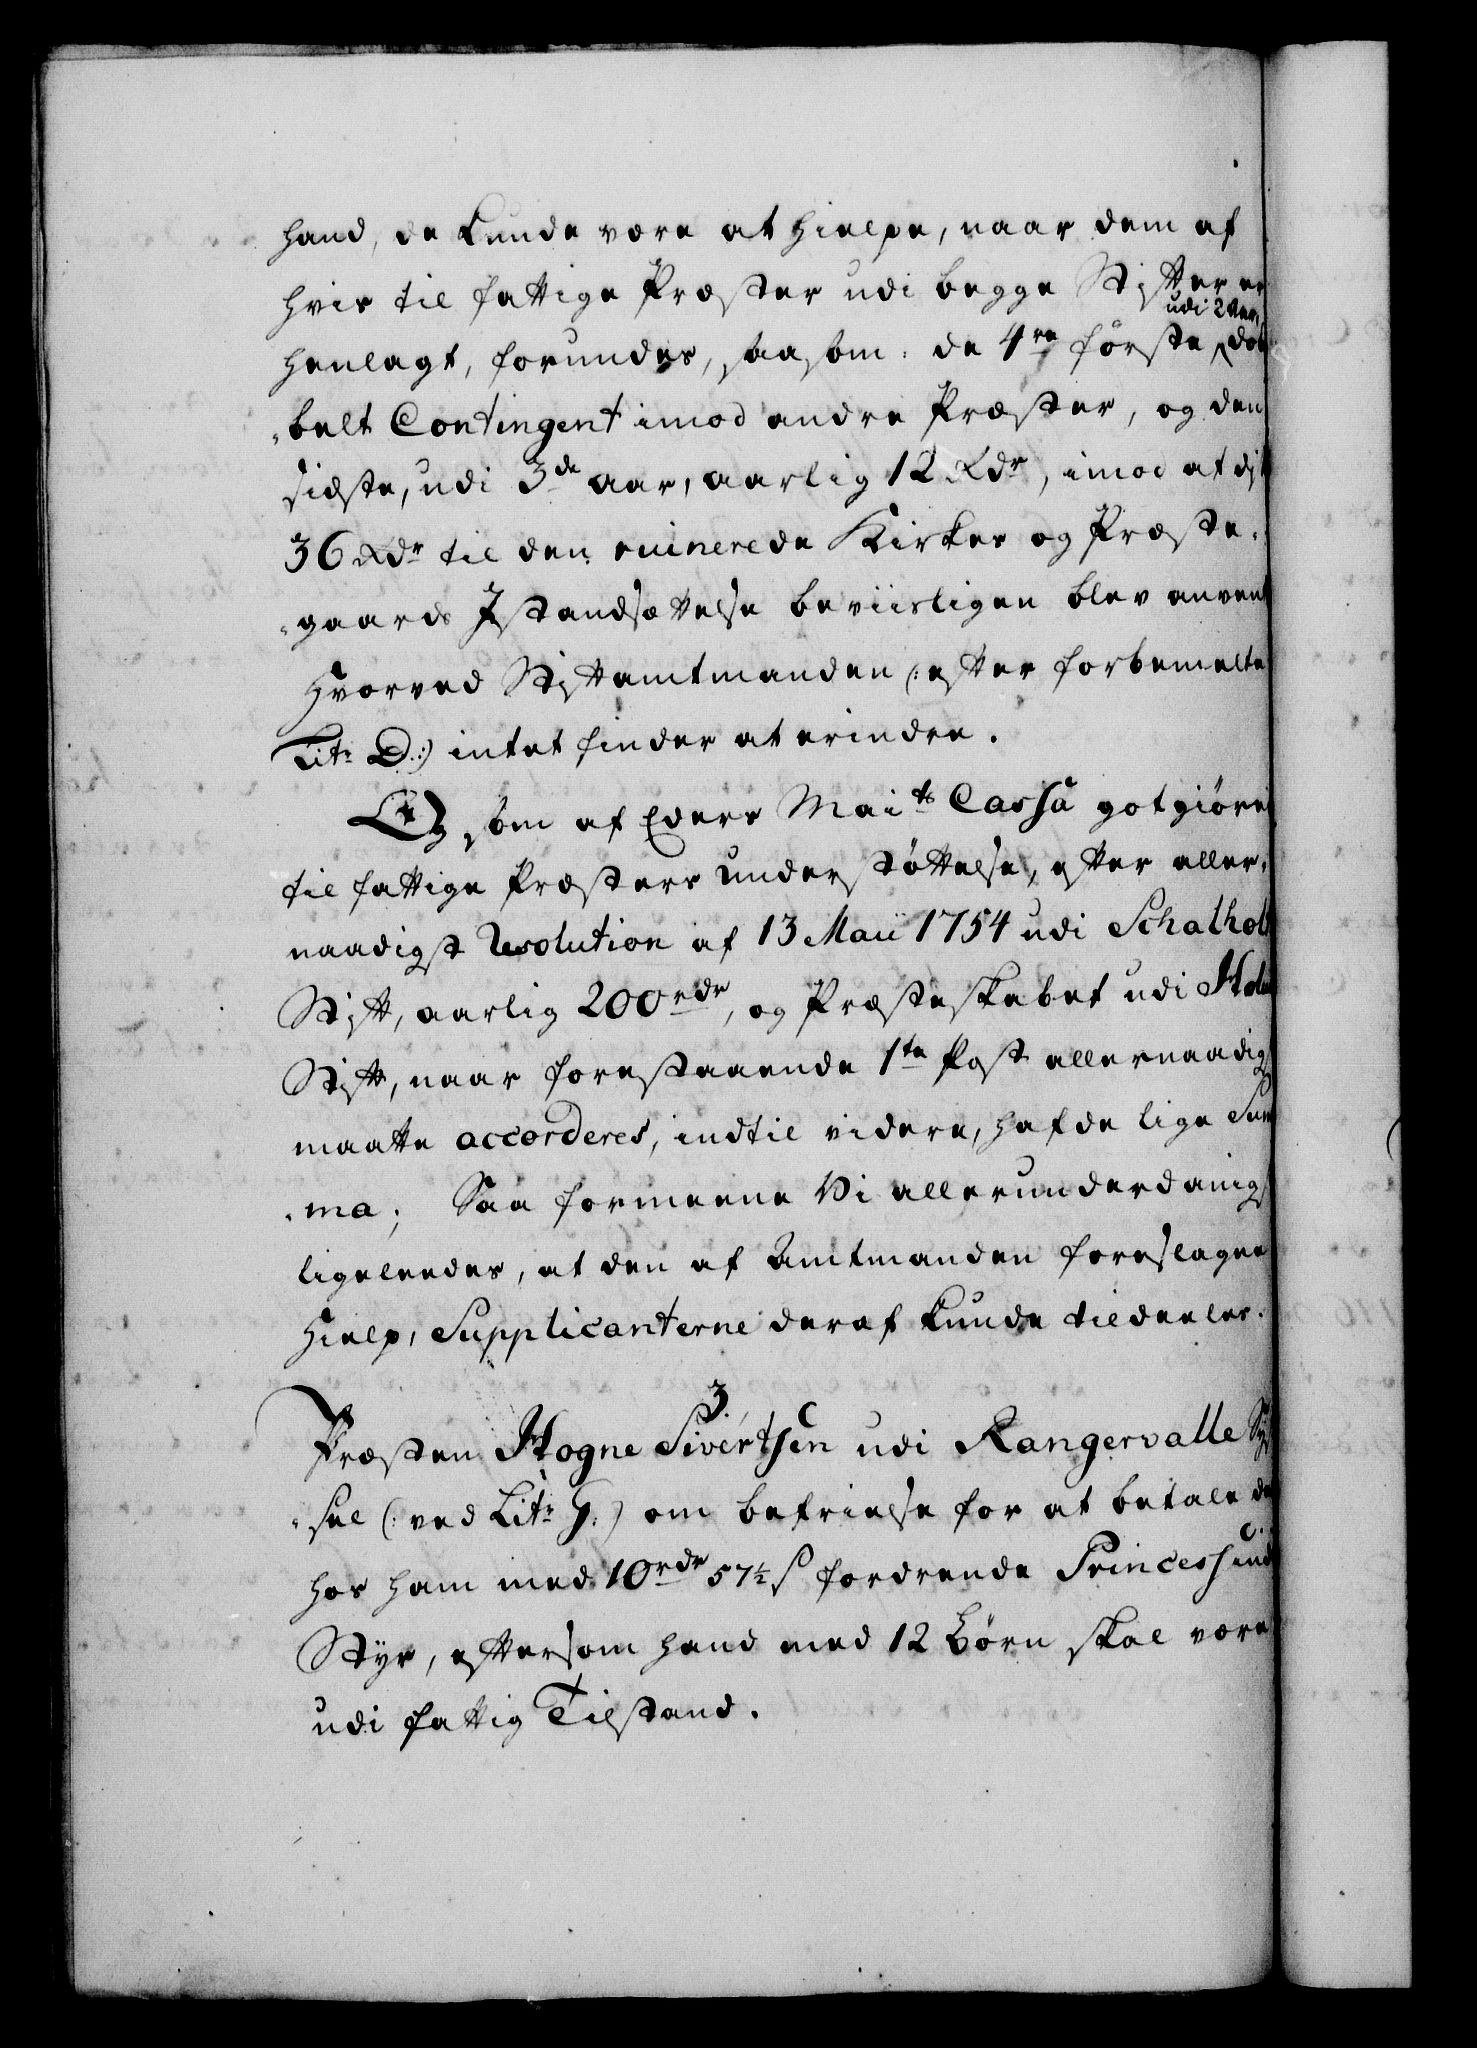 hand, de kunde være at hielpe, naar dem af
hvis til fattige Præster udi begge Stifter er
udi 2 Aar,
henlagt, forundes, saasom: de 4re förste dob
„belt Contingent imod andre Præster, og den
sidste, udi 3de aar, aarlig 12 Rdr, imod at
36 Rdr til den ruinerede Kirkes og Præste-
„gaards Istandsættelse beviisligen blev anvent
Hvorved Stiftamtmanden (: efter forbemelte
Litr D.:) intet finder at erindre.
Og som af Eders Maits Cassa gotgiöres
til fattige Præsters understöttelse, efter aller-
naadigst Resolution af 13 Maii 1754 udi Schalholt
Stift, aarlig 200 rdr, og Præsteskabet udi Holu
Stift, naar forestaaende 1te Post allernaadigst
maatte accorderes, indtil videre, hafde lige Sum
„ma; Saa formeene Vi allerunderdanigst
ligeleedes, at den af Amtmanden foreslagne
Hielp, Supplicanterne deraf kunde tildeeles.
3.
Præsten Hogne Sivertsen udi Rangervalle Sys
„sel (: ved Litr G:) om befrielse for at betale de
hos ham med 10 rdr 57½ s fordrende Princesseind
Styr, eftersom hand med 12 Börn skal være
udi fattig Tilstand.